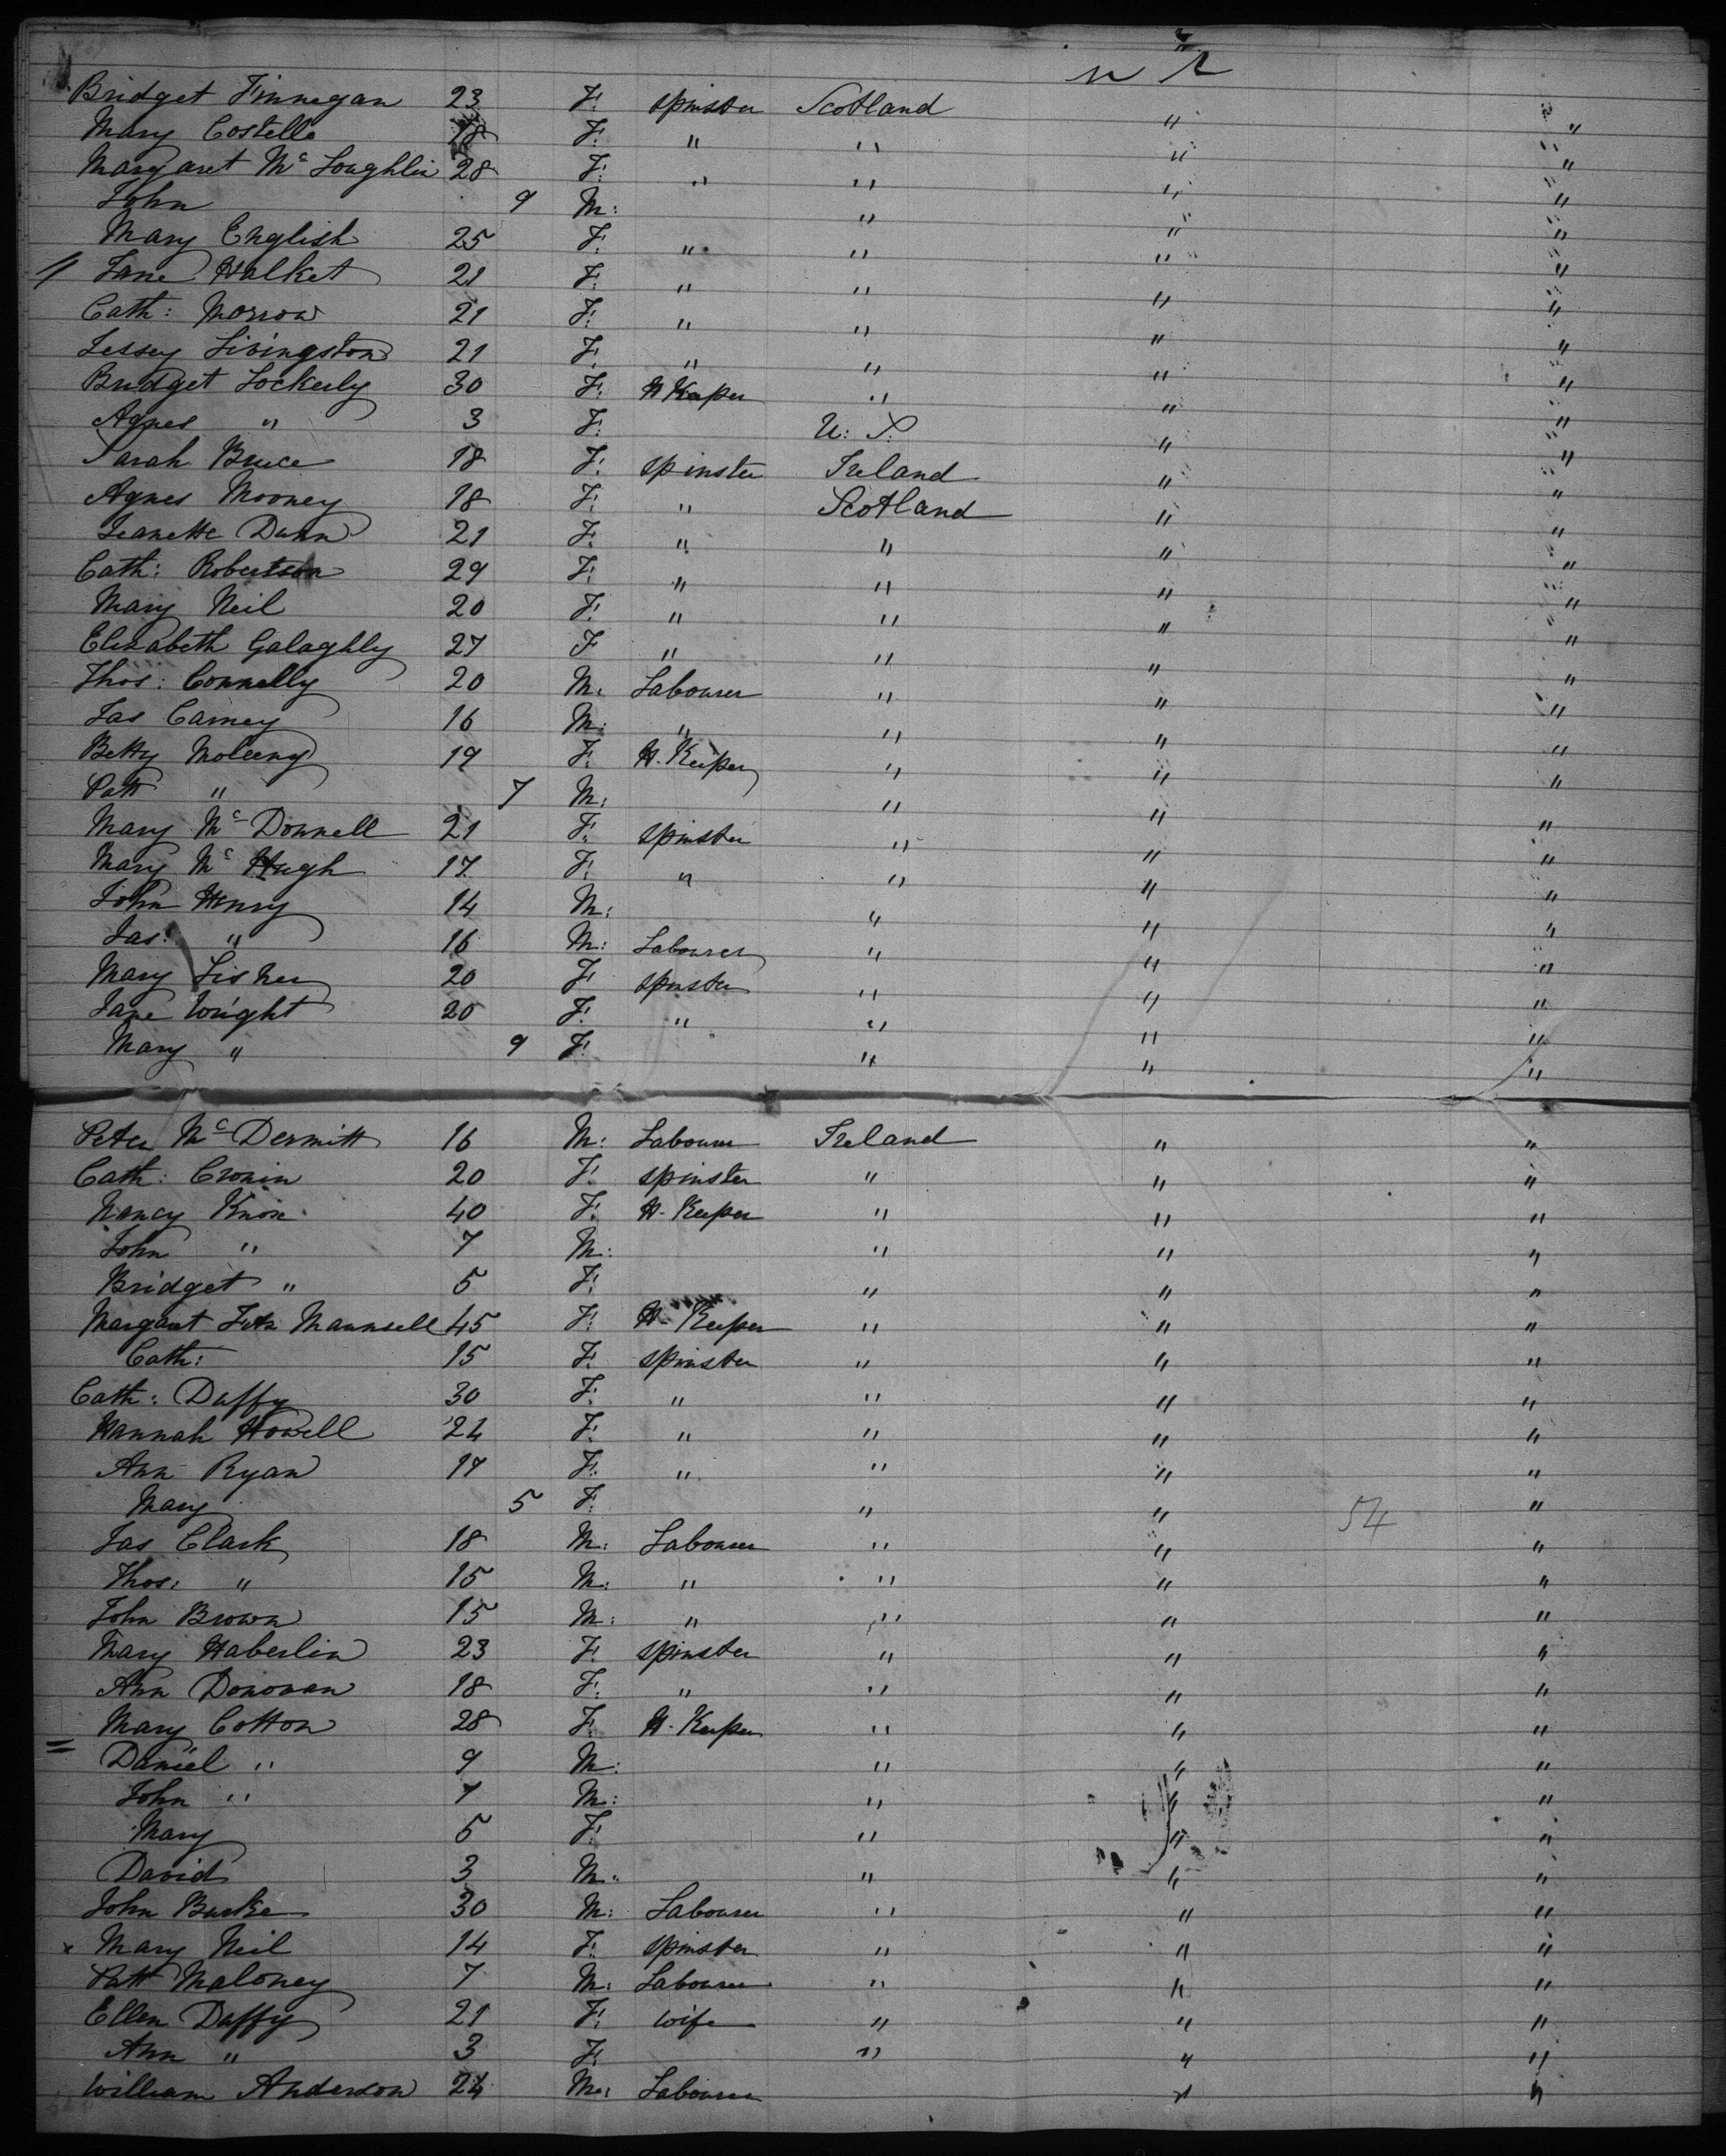 n Y
Bridget Finnegan 23 F. Spinster Scotland " "
Mary Costello 18 F. " " " "
Margaret Mc Loughlin 28 F. " " " "
John 9 M. " " "
Mary English 25 F. " " " "
Jane Halket 21 F. " " " "
Cath: Morrow 21 F. " " " "
Jessey Livingston 21 F. " " " "
Bridget Lockerly 30 F. H Keeper " " "
Agnes " 3 F. U. S. " "
Sarah Bruce 18 F. Spinster Ireland " "
Agnes Mooney 18 F. " Scotland " "
Jeanette Dunn 21 F. " " " "
Cath: Robertson 29 F. " " " "
Mary Neil 20 F. " " " "
Elizabeth Galaghly 27 F " " " "
Thos: Connelly 20 M. Labourer " " "
Jas Carney 16 M. " " " "
Betty 19 F. H. Keeper " " "
Patt " 7 M. " " "
Mary Mc Donnell 21 F. Spinster " " "
Mary Mc Hugh 17 F. " " " "
John Henry 14 M. " " "
Jas: " 16 M. Labourer " " "
Mary 20 F Spinster " " "
Jane Wright 20 F. " " " "
Mary " 9 F. " " "
Peter Mc Dermitt 16 M. Labourer Ireland " "
Cath: Cronin 20 F. Spinster " " "
Nancy Knox 40 F. H. Keeper " " "
John " 7 M. " " "
Bridget " 5 F. " " "
Margaret Fitz Maunsell 45 F. H. Keeper " " "
Cath: 15 F. Spinster " " "
Cath: Duffy 30 F. " " " "
Hannah Howell 24 F. " " " "
Ann Ryan 17 F. " " " "
Mary 5 F. " " 54 "
Jas Clark 18 M. Labourer " " "
Thos: " 15 M. " " " "
John Brown 15 M. " " " "
Mary Haberlin 23 F. Spinster " " "
Ann Donovan 18 F. " " " "
Mary Cotton 28 F. H. Keeper " " "
= Daniel " 9 M. " " "
John " 7 M. " " "
Mary 5 F. " " "
David 3 M. " " "
John Burke 30 M. Labourer " " "
x Mary Neil 14 F. Spinster " " "
Patt Maloney 7 M. Labourer " " "
Ellen Duffy 21 F. Wife " " "
Ann " 3 F. " " "
William Anderson 24 M. Labourer " "